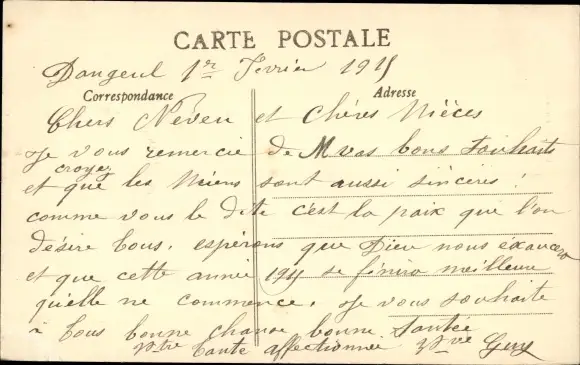 CARTE POSTALE
Dangeul 1er Février 1915
Correspondance
Adresse
Chers Neveu et Chères Nièces
Je vous remercie de vos bons Souhaits
croyez
et que les Miens sont aussi sincères !
comme vous le dite c'est la paix que l'on
désire tous. espérons que Dieu nous éxaucera
et que cette année 1915 se finira meilleure
quelle ne commence. Je vous souhaite
à tous bonne chance bonne Santée
Votre tante affectionnée Vve